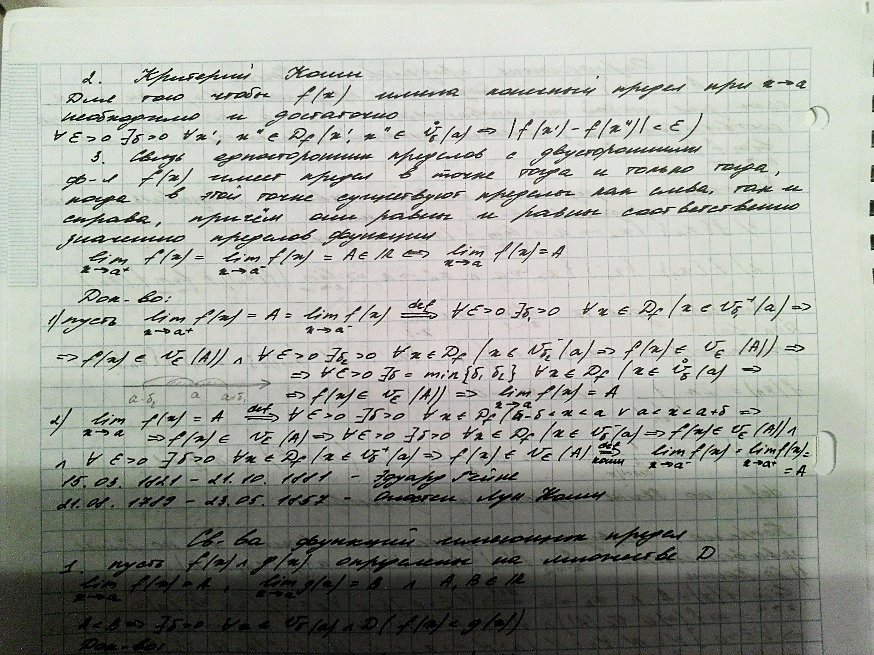 2. Критерий Коши
Для того чтобы f(x) имела конечный предел при x→a
необходимо и достаточно
∀ε>0 ∃δ>0 ∀x', x"∈D_f (x', x"∈ Ů_δ(a) ⇒ |f(x')-f(x")|<ε)
3. Связь односторонних пределов с двусторонними
ф-я f(x) имеет предел в точке тогда и только тогда,
когда в этой точке существуют пределы как слева, так и
справа, причём они равны и равны соответственно
значению пределов функции
lim x→a⁺ f(x) = lim x→a⁻ f(x) = A∈ℝ ⇔ lim x→a f(x)=A
Док-во:
1) пусть lim x→a⁺ f(x) = A = lim x→a⁻ f(x) def⟹ ∀ε>0 ∃δ₁>0 ∀x∈D_f (x∈U_δ₁⁺(a) ⇒
⇒ f(x)∈ U_ε(A)) ∧ ∀ε>0 ∃δ₂>0 ∀x∈D_f (x∈ U_δ₂⁻(a) ⇒ f(x)∈ U_ε(A)) ⇒
⇒ ∀ε>0 ∃δ = min{δ₁ δ₂} ∀x∈D_f (x∈ Ů_δ(a) ⇒
a-δ₂ a a+δ₁ ⇒ f(x)∈ U_ε(A)) ⇒ lim x→a f(x) = A
2) lim x→a f(x) = A def⟹ ∀ε>0 ∃δ>0 ∀x∈D_f (a-δ<x<a ∨ a<x<a+δ ⇒
⇒ f(x)∈ U_ε(A) ⇒ ∀ε>0 ∃δ>0 ∀x∈D_f (x∈ U_δ⁻(a) ⇒ f(x)∈ U_ε(A) ∧
∧ ∀ε>0 ∃δ>0 ∀x∈D_f (x∈U_δ⁺(a) ⇒ f(x)∈ U_ε(A) def⟹ Коши lim x→a⁻ f(x) = lim x→a⁺ f(x) =
= A
15.03.1821 – 21.10.1881 – Эдуард Гейне
21.08.1789 – 23.05.1857 – Огюстен Луи Коши
Св-ва функций имеющих предел
1. пусть f(x) ∧ g(x) определены на множестве D
lim x→a f(x) = A, lim x→a g(x) = B ∧ A, B∈ℝ
A<B ⇒ ∃δ>0 ∀x∈ Ů_δ(a) ∩ D (f(x)<g(x))
Док-во: